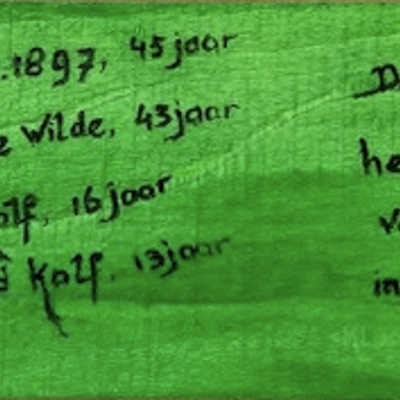 .1897, 45 jaar
e Wilde, 43 jaar
olf, 16 jaar
Kalf. 13 jaar
D
he
v
in